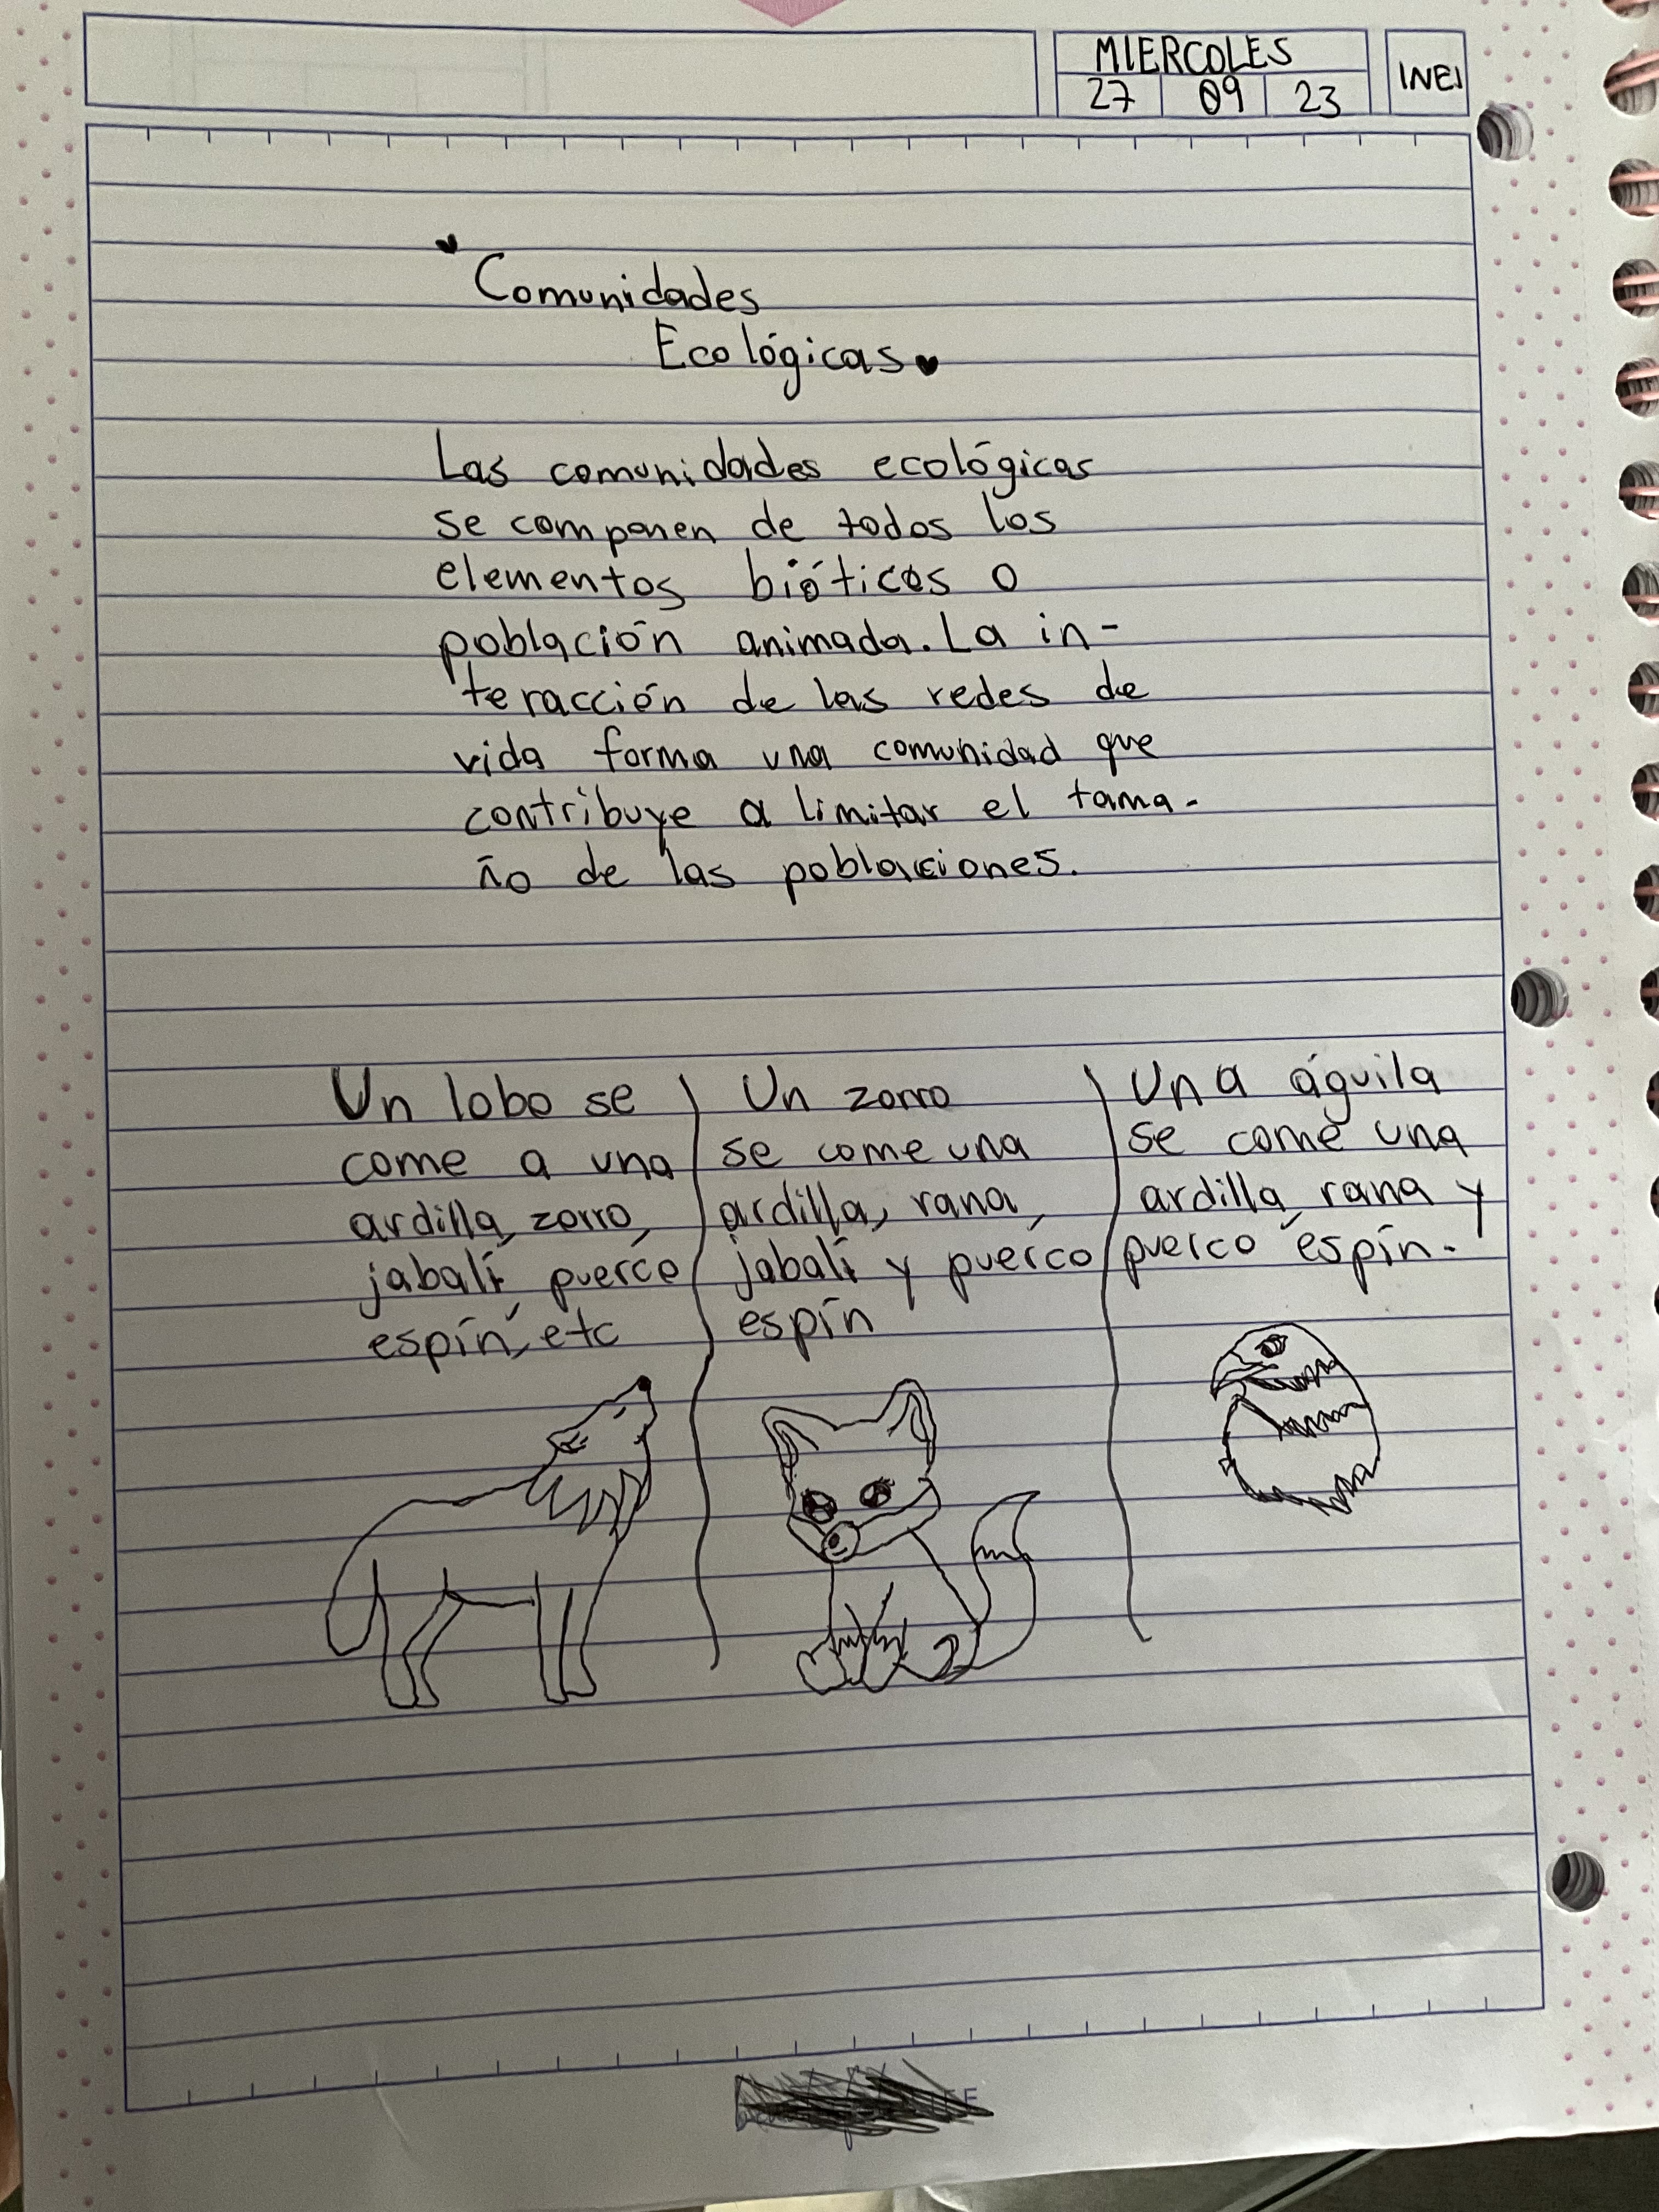 MIERCOLES
27 09 23
INEI
Comunidades
Ecológicas
Las comunidades ecológicas
se componen de todos los
elementos bióticos o
población animada. La in-
teracción de las redes de
vida forma una comunidad que
contribuye a limitar el tama-
ño de las poblaciones.
Un lobo se
come a una
ardilla, zorro,
jabalí, puerco
espín, etc
Un zorro
se come una
ardilla, rana,
jabalí y puerco
espín
Una águila
se come una
ardilla, rana y
puerco espín.